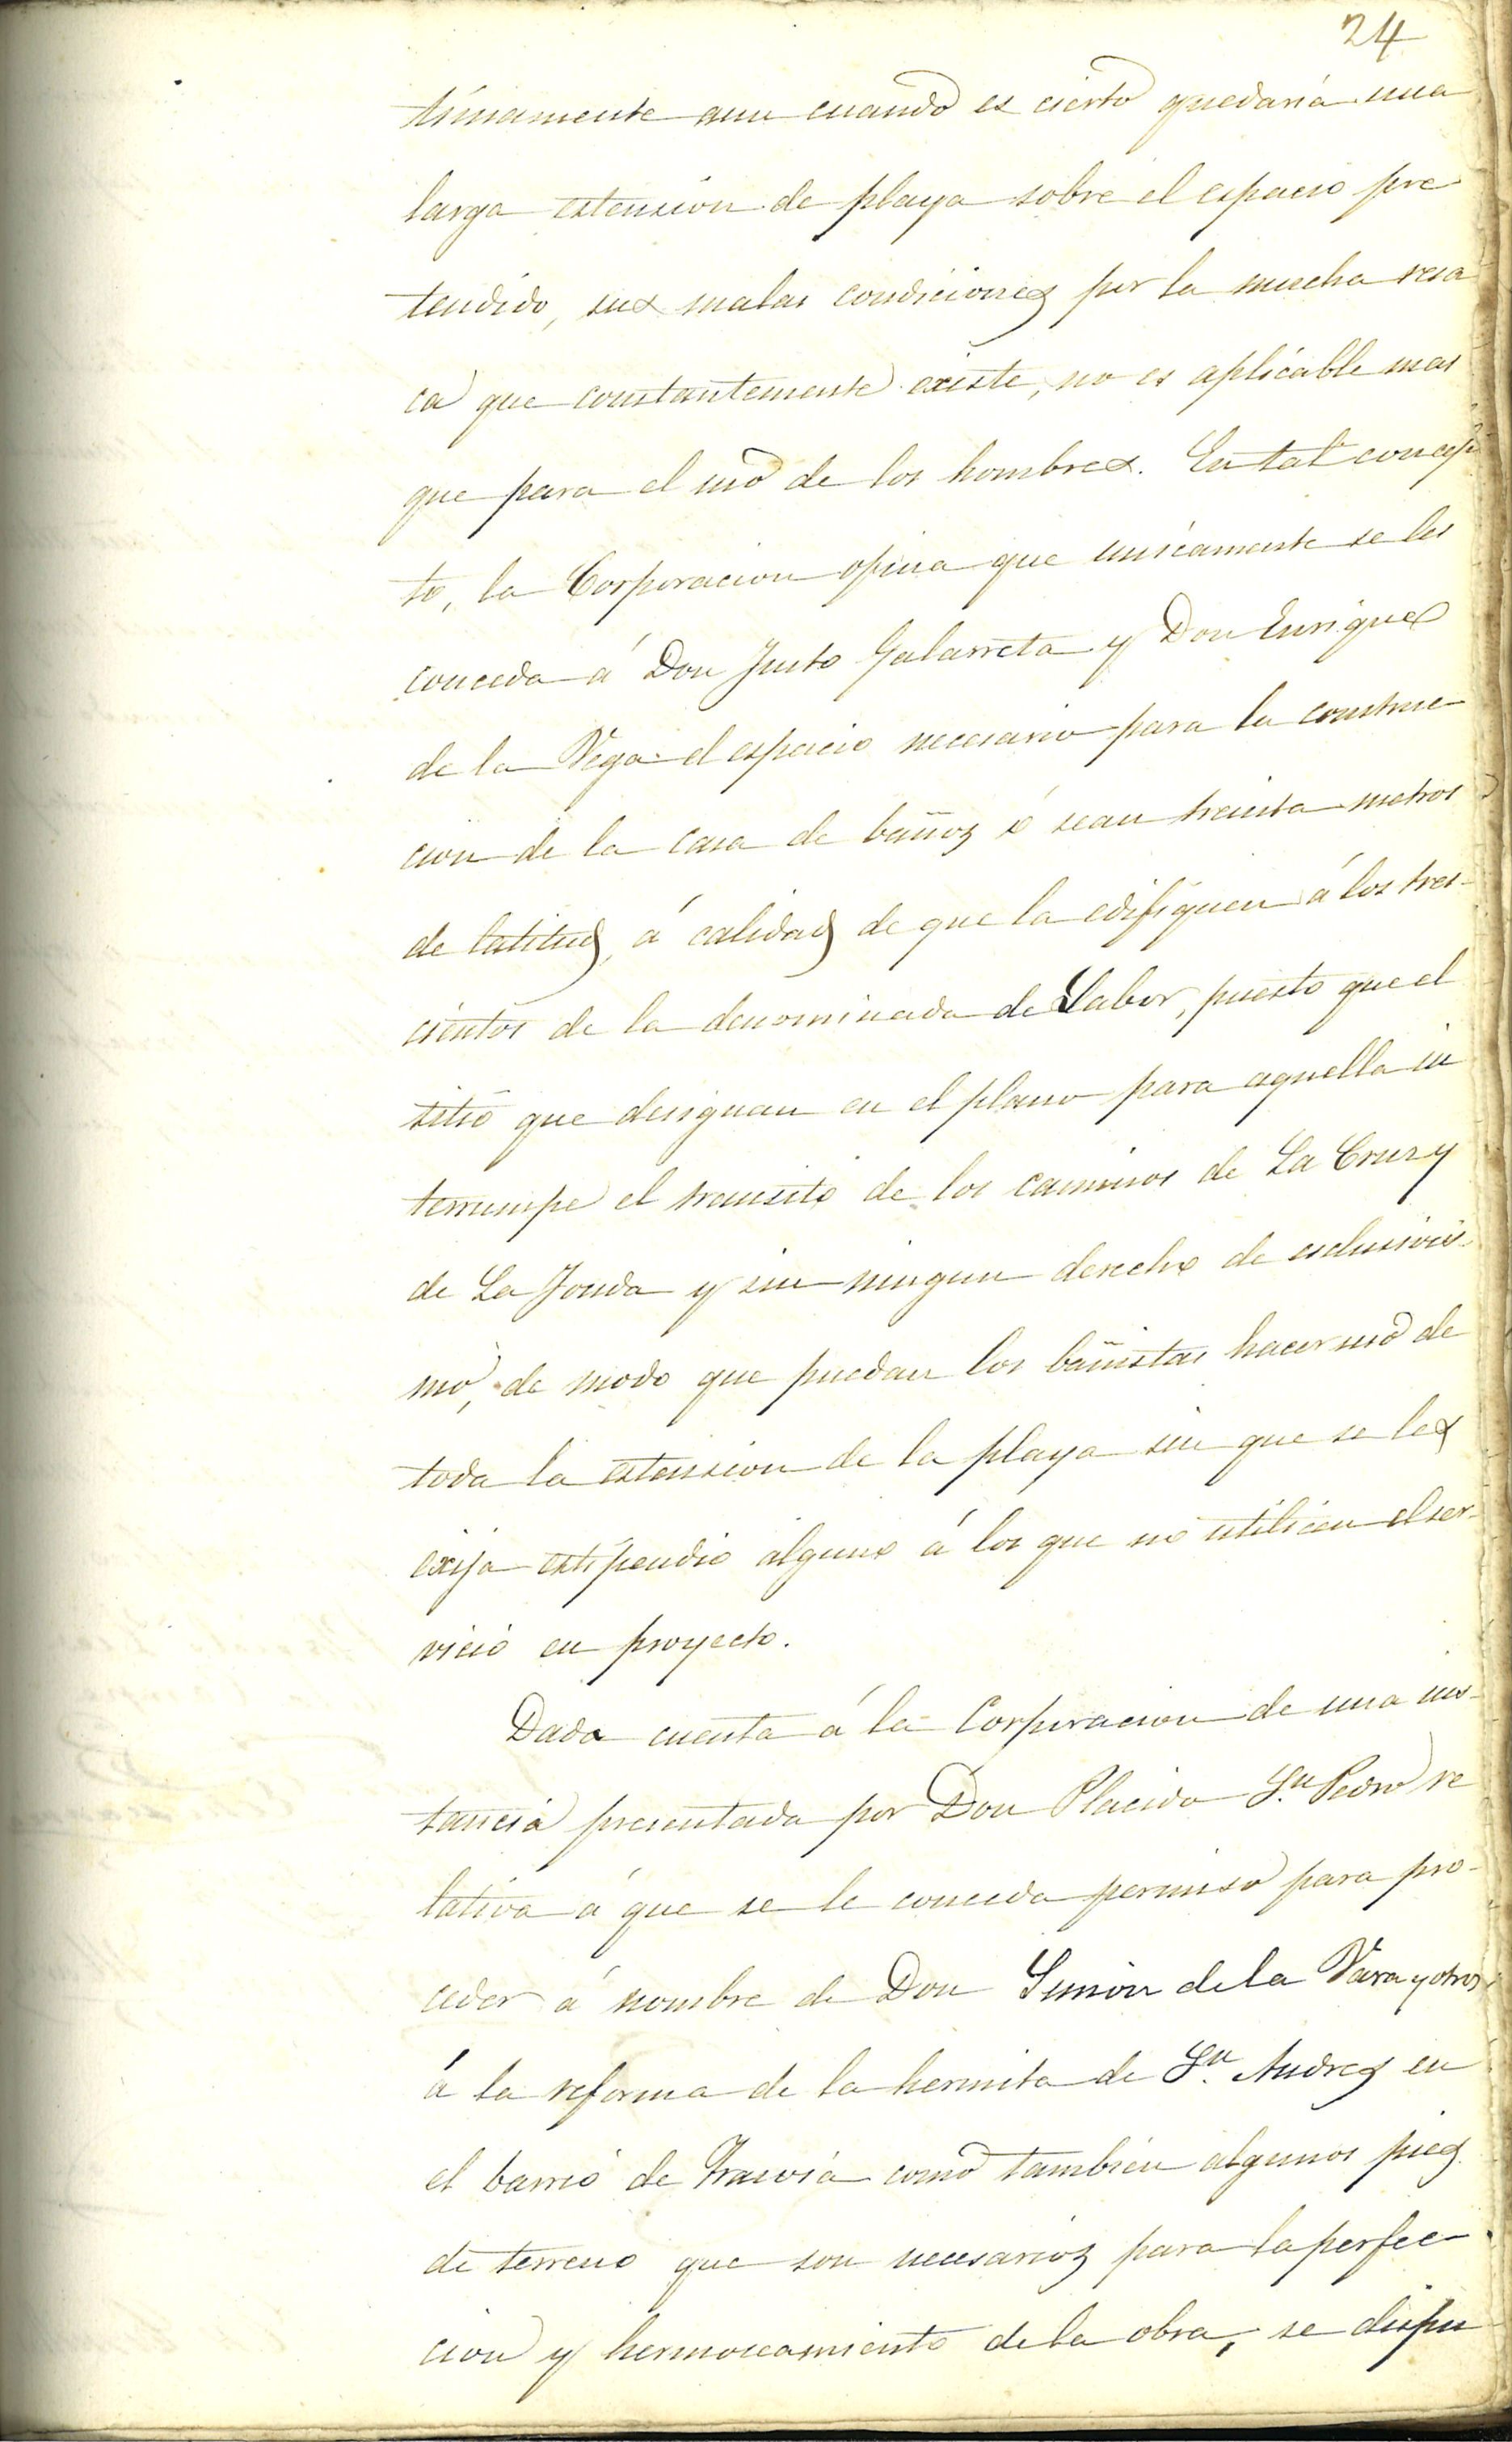 24
timamente aun cuando es cierto quedaria una
larga estension de playa sobre el espacio pre
tendido, sus malas condiciones por la mucha resa
ca que constantemente existe, no es aplicable mas
que para el uso de los hombres. En tal concep
to, la Corporacion opina que unicamente se les
conceda á Don Justo Galarreta y Don Enrique
de la Vega el espacio necesario para la construc
cion de la casa de baños ó sean treinta metros
de latitud, á calidad de que la edifiquen á los tres-
cientos de la denominada de Labor, puesto que el
sitio que designan en el plano para aquella in
terrumpe el transito de los caminos de La Cruz y
de La Fonda y sin ningun derecho de esclusivis-
mo, de modo que puedan los bañistas hacer uso de
toda la estension de la playa sin que se les
exija estipendio alguno á los que no utilicen el ser-
vicio en proyecto.
Dada cuenta á la Corporacion de una ins-
tancia presentada por Don Placido Sn. Pedro re
lativa á que se le conceda permiso para pro-
ceder á nombre de Don Simon de la Vara y otros
á la reforma de la hermita de Sn. Andres en
el barrio de Trasvia como tambien algunos pies
de terreno que son necesarios para la perfec-
cion y hermoseamiento de la obra, se dispu